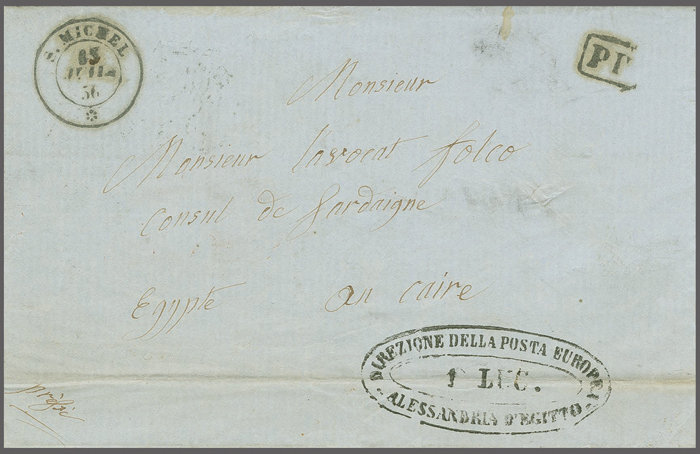 S. MICHEL
15
JUIL
56
PD
Monsieur
Monsieur l'avocat Folco
Consul de Sardaigne
Egypte au caire
DIREZIONE DELLA POSTA EUROPEA
1 LUG.
ALESSANDRIA D'EGITTO